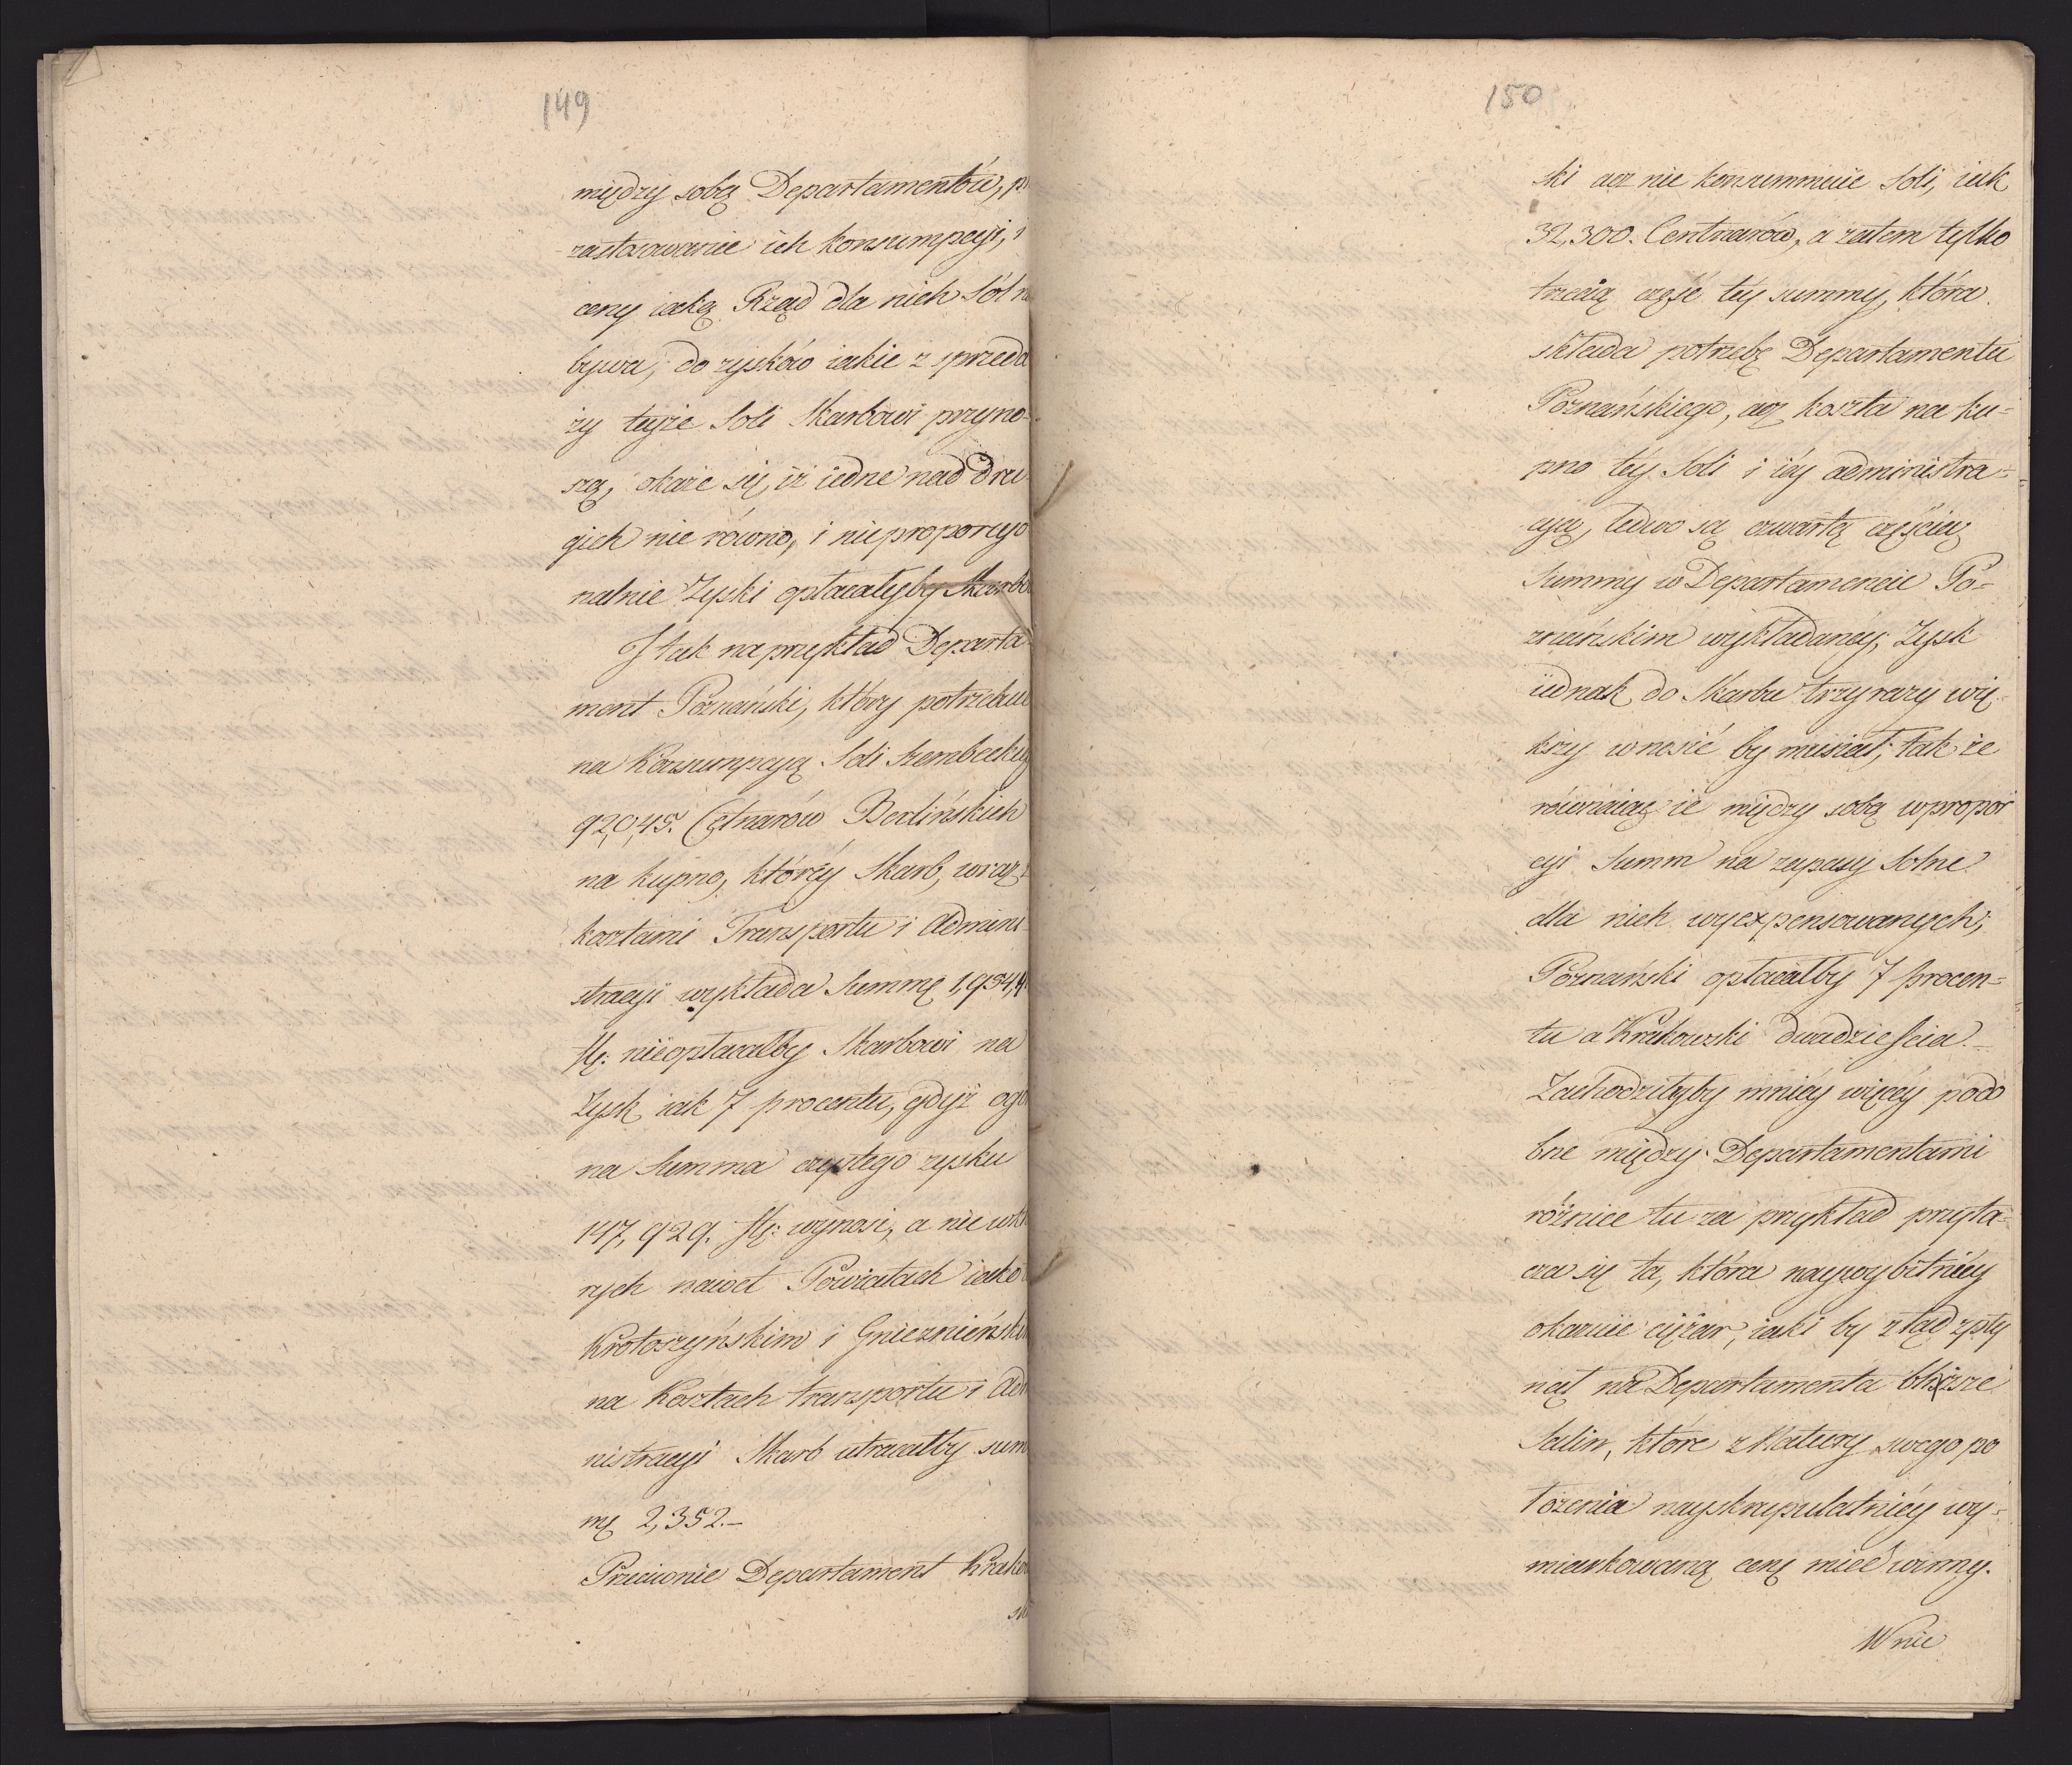 149
między sobą Departamentów,
zastosowanie ich konsumpcyi,
ceny iaką Rząd dla nich Sól
bywa, do zysków iakie z sprzeda
ży teyże Soli Skarbowi przyno-
szą, okaże się, iż iedne nad dru
gich nie równo, i nieproporcyo
nalnie Zyski opłacałyby
I tak na przykład Departa
ment Poznański, który potrzebuie
na Konsumpcyą Soli Szembeckiey
92,045. Cetnarów Berlińskich
na kupno, któréy Skarb, wraz z
kosztami Transportu i Admini-
stracyi wykłada Summę 1,954,4
złł: nieopłacałby Skarbowi na
Zysk iak 7 procentu, gdyż ogól
na Summa czystego zysku
147,929. złł: wynosi, a nie któ
rych nawet Powiatach iako
Krotoszyńskim i Gnieznieńskim
na Kosztach transportu i Adm
nistracyi Skarb utracałby sum
mę 2,352.—
Przeciwnie Departament Krakow
ski
150
ski acz nie konsummuie Soli, iak
32,300. Centnarów, a zatem tylko
trzecią część téy summy, która
składa potrzebę Departamentu
Poznańskiego, acz koszta na ku-
pno téy Soli i iéy administra-
cyą, ledwo są czwartą częścią
Summy w Departamencie Po-
znańskim wykładanéy, Zysk
iednak do Skarbu trzy razy wię
kszy wnosić by musiał, tak że
równaiąc ie między sobą w propor
cyi Summ na zapasy Solne
dla nich wyexpensowanych,
Poznański opłacałby 7 procen-
tu a Krakowski dwadzieścia.—
Zachodziłyby mniéy więcéy podo
bne między Departamentami
różnice tu za przykład przyta-
cza się ta, która naywybitniéy
okazuie ciężar, iaki by ztąd spły
nął na Departamenta bliższe
Salin, które z Natury swego po
łożenia nayskrupulatniéy wy-
miarkowaną cenę mieć winny.
W nie